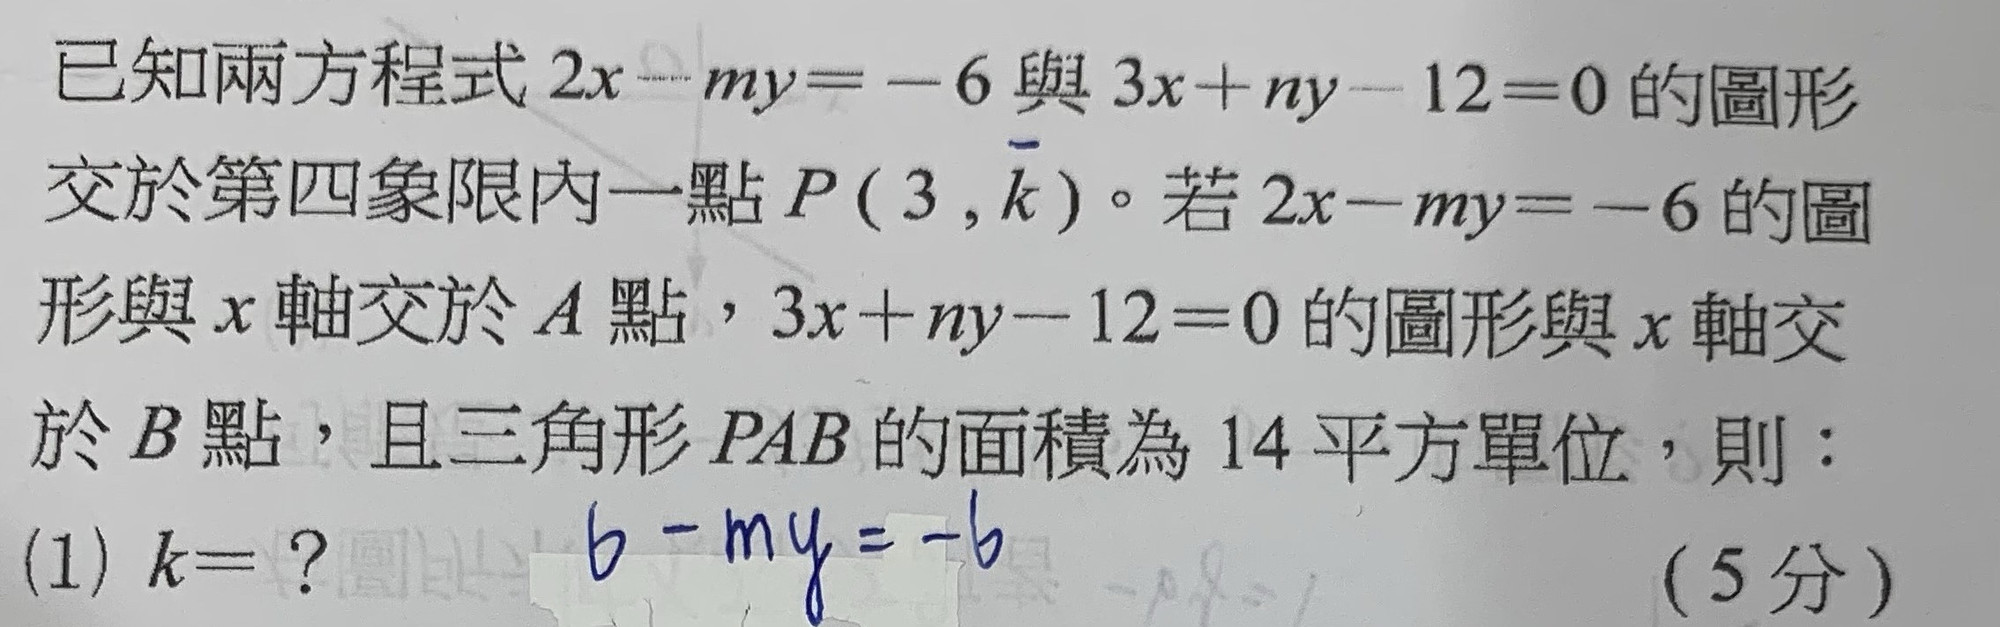 已知兩方程式 2x－my＝－6 與 3x＋ny－12＝0 的圖形
交於第四象限內一點 P（3 , k）。若 2x－my＝－6 的圖
形與 x 軸交於 A 點，3x＋ny－12＝0 的圖形與 x 軸交
於 B 點，且三角形 PAB 的面積為 14 平方單位，則：
(1) k＝？ （5 分）
6 - my = -6